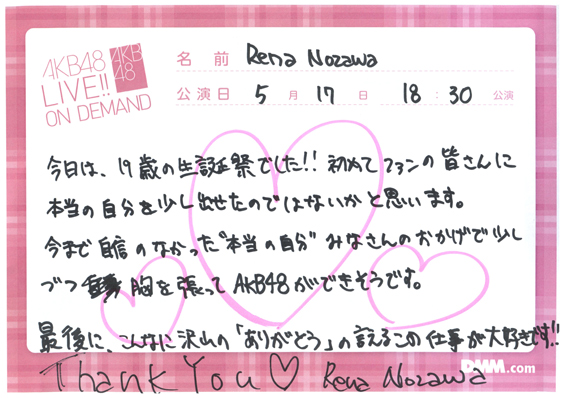 AKB48
LIVE!!
ON DEMAND
AKB
48
名前 Rena Nozawa
公演日 5月17日 18:30公演
今日は、19歳の生誕祭でした!! 初めてファンの皆さんに
本当の自分を少し出せたのではないかと思います。
今まで自信のなかった“本当の自分”みなさんのおかげで少し
づつ 胸を張ってAKB48ができそうです。
最後に、こんなに沢山の「ありがとう」の言えるこの仕事が大好きです!!
Thank You♡ Rena Nozawa
DMM.com